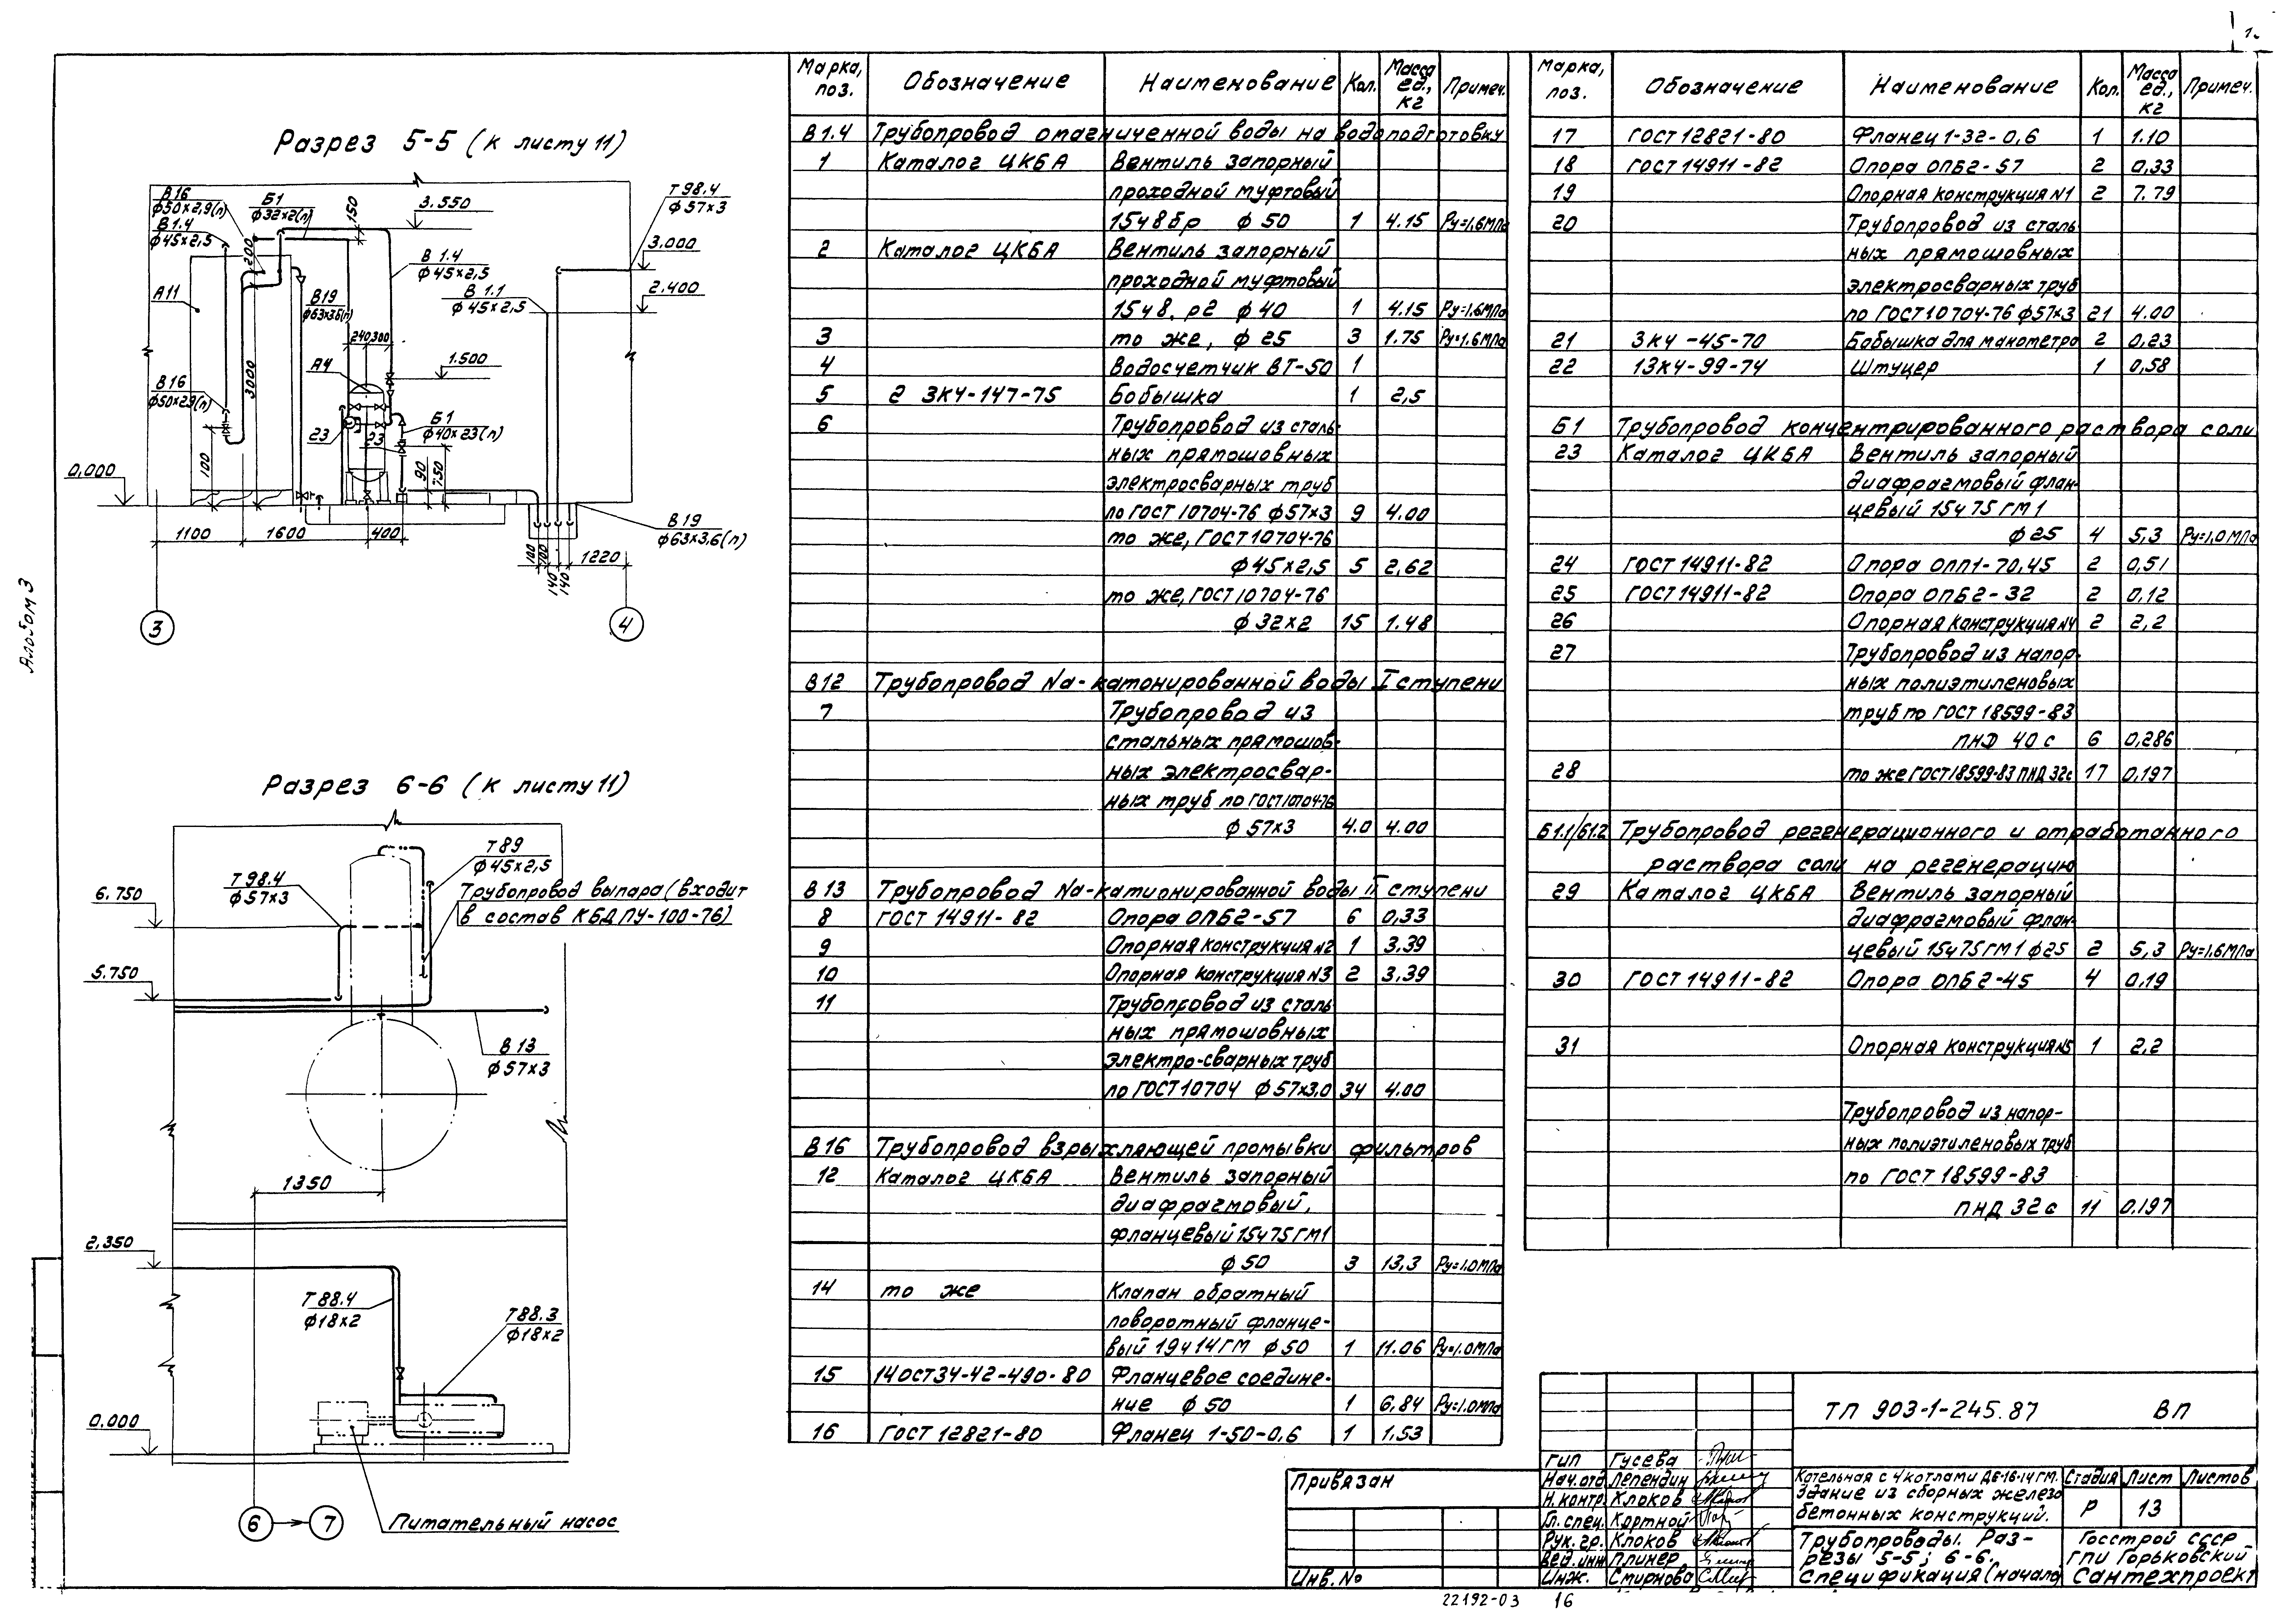 Альбом 3
Разрез 5-5 (к листу 11)
В16
ф50×2,9(п)
В1.4
ф45×2,5
Б1
ф32×2(п)
150
3.550
Т98.4
ф57×3
3.000
2.400
200
В1.4
ф45×2,5
В1.1
ф45×2,5
А11
В19
ф63×3,6(п)
240 300
А4
1.500
3000
В16
ф50×2,9(п)
Б1
ф40×2,3(п)
23
23
100
90
750
0,000
1100
1600
400
100
100
140
140
1220
В19
ф63×3,6(п)
3
4
Разрез 6-6 (к листу 11)
Т89
ф45×2,5
Т98.4
ф57×3
Трубопровод выпара (входит
в состав КБДПУ-100-76)
6.750
5.750
В13
ф57×3
1350
2,350
Т88.4
ф18×2
Т88.3
ф18×2
0,000
6
7
Питательный насос
Марка, поз. Обозначение Наименование Кол. Масса ед., кг Примеч.
В1.4 Трубопровод омагниченной воды на водоподготовку
1 Каталог ЦКБА Вентиль запорный
проходной муфтовый
15ч8бр ф50 1 4.15 Ру=1,6МПа
2 Каталог ЦКБА Вентиль запорный
проходной муфтовый
15ч8.р2 ф40 1 4.15 Ру=1,6МПа
3 то же, ф25 3 1.75 Ру=1.6МПа
4 Водосчетчик ВТ-50 1
5 2 ЗКЧ-147-75 Бобышка 1 2,5
6 Трубопровод из сталь-
ных прямошовных
электросварных труб
по ГОСТ 10704-76 ф57×3 9 4.00
то же, ГОСТ 10704-76
ф45×2,5 5 2,62
то же, ГОСТ 10704-76
ф32×2 15 1.48
В12 Трубопровод Na-катонированной воды I ступени
7 Трубопровод из
стальных прямошов-
ных электросвар-
ных труб по ГОСТ 10704-76
ф57×3 4.0 4.00
В13 Трубопровод Na-катионированной воды II ступени
8 ГОСТ 14911-82 Опора ОПБ2-57 6 0,33
9 Опорная конструкция №2 1 3.39
10 Опорная конструкция №3 2 3.39
11 Трубопровод из сталь-
ных прямошовных
электро-сварных труб
по ГОСТ 10704 ф57×3,0 34 4.00
В16 Трубопровод взрыхляющей промывки фильтров
12 Каталог ЦКБА Вентиль запорный
диафрагмовый,
фланцевый 15ч75ГМ1
ф50 3 13,3 Ру=1.0МПа
14 то же Клапан обратный
поворотный фланце-
вый 19ч14ГМ ф50 1 11.06 Ру=1.0МПа
15 14ОСТ34-42-490-80 Фланцевое соедине-
ние ф50 1 6,84 Ру=1.0МПа
16 ГОСТ 12821-80 Фланец 1-50-0,6 1 1,53
Марка, поз. Обозначение Наименование Кол. Масса ед., кг Примеч.
17 ГОСТ 12821-80 Фланец 1-32-0,6 1 1.10
18 ГОСТ 14911-82 Опора ОПБ2-57 2 0,33
19 Опорная конструкция №1 2 7.79
20 Трубопровод из сталь
ных прямошовных
электросварных труб
по ГОСТ 10704-76 ф57×3 21 4.00
21 ЗКЧ-45-70 Бобышка для манометра 2 0,23
22 13КЧ-99-74 Штуцер 1 0,58
Б1 Трубопровод концентрированного раствора соли
23 Каталог ЦКБА Вентиль запорный
диафрагмовый флан-
цевый 15ч75ГМ1
ф25 4 5,3 Ру=1,0МПа
24 ГОСТ 14911-82 Опора ОПП1-70,45 2 0,51
25 ГОСТ 14911-82 Опора ОПБ2-32 2 0,12
26 Опорная конструкция №4 2 2,2
27 Трубопровод из напор-
ных полиэтиленовых
труб по ГОСТ 18599-83
ПНД 40с 6 0,286
28 то же ГОСТ 18599-83 ПНД 32с 17 0,197
Б1.1/Б1.2 Трубопровод регенерационного и отработанного
раствора соли на регенерацию
29 Каталог ЦКБА Вентиль запорный
диафрагмовый флан-
цевый 15ч75ГМ1 ф25 2 5,3 Ру=1.6МПа
30 ГОСТ 14911-82 Опора ОПБ2-45 4 0,19
31 Опорная конструкция №5 1 2,2
Трубопровод из напор-
ных полиэтиленовых труб
по ГОСТ 18599-83
ПНД 32с 11 0.197
Привязан
Инв.№
ГИП Гусева
Нач.отд Лепендин
Н.контр. Клоков
Гл.спец. Кортной
Рук.гр. Клоков
Вед.инж Плинер
Инж. Смирнова
ТП 903-1-245.87 ВП
Котельная с 4 котлами ДЕ-16-14ГМ.
Здание из сборных железо
бетонных конструкций.
Стадия Лист Листов
Р 13
Трубопроводы. Раз-
резы 5-5; 6-6.
Спецификация (начало)
Госстрой СССР
ГПИ Горьковский
Сантехпроект
22192-03 16